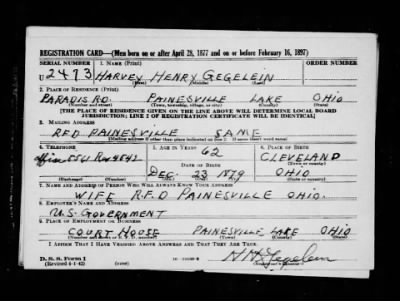 REGISTRATION CARD—(Men born on or after April 28, 1877 and on or before February 16, 1897)
SERIAL NUMBER 1. NAME (Print) ORDER NUMBER
U 2473 HARVEY HENRY GEGELEIN
(First) (Middle) (Last)
2. PLACE OF RESIDENCE (Print)
PARADIS RD. PAINESVILLE LAKE OHIO
(Number and street) (Town, township, village, or city) (County) (State)
[THE PLACE OF RESIDENCE GIVEN ON THE LINE ABOVE WILL DETERMINE LOCAL BOARD
JURISDICTION; LINE 2 OF REGISTRATION CERTIFICATE WILL BE IDENTICAL]
3. MAILING ADDRESS
RFD PAINESVILLE SAME
[Mailing address if other than place indicated on line 2. If same insert word same]
4. TELEPHONE 5. AGE IN YEARS 6. PLACE OF BIRTH
62 CLEVELAND
DATE OF BIRTH (Town or county)
DEC. 23 1879 OHIO
(Mo.) (Day) (Yr.) (State or country)
7. NAME AND ADDRESS OF PERSON WHO WILL ALWAYS KNOW YOUR ADDRESS
WIFE R.F.D PAINESVILLE OHIO.
8. EMPLOYER'S NAME AND ADDRESS
U.S. GOVERNMENT
9. PLACE OF EMPLOYMENT OR BUSINESS
COURT HOUSE PAINESVILLE LAKE OHIO
(Number and street or R. F. D. number) (Town) (County) (State)
I AFFIRM THAT I HAVE VERIFIED ABOVE ANSWERS AND THAT THEY ARE TRUE.
D. S. S. Form 1
(Revised 4-1-42) H H Gegelein
(Registrant's signature)